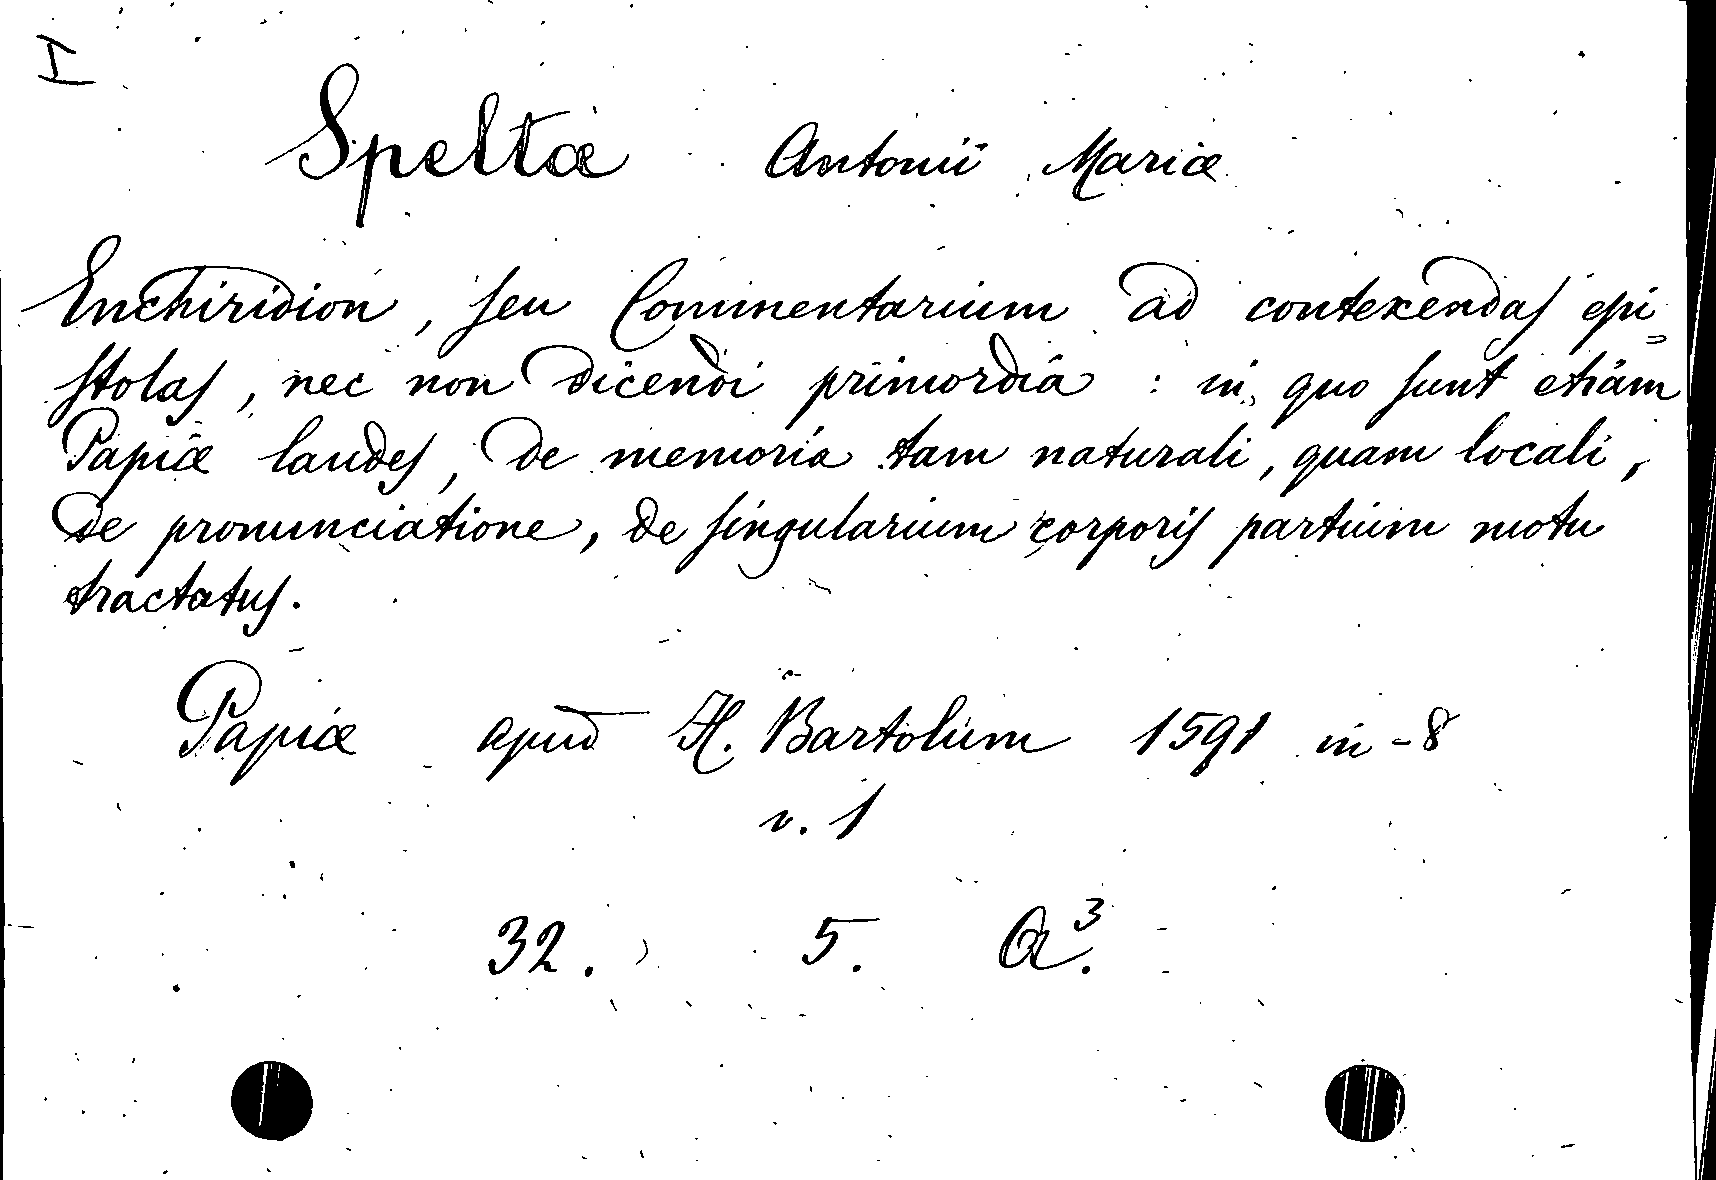 I
Speltæ Antonii Mariæ
Enchiridion, seu Commentarium ad contexendas epi=
stolas, nec non dicendi primordia : in quo sunt etiam
Papiæ laudes, de memoria tam naturali, quam locali,
de pronunciatione, de singularium corporis partium motu
tractatus.
Papiæ apud H. Bartolum 1591 in-8
v. 1
32. 5. a³.